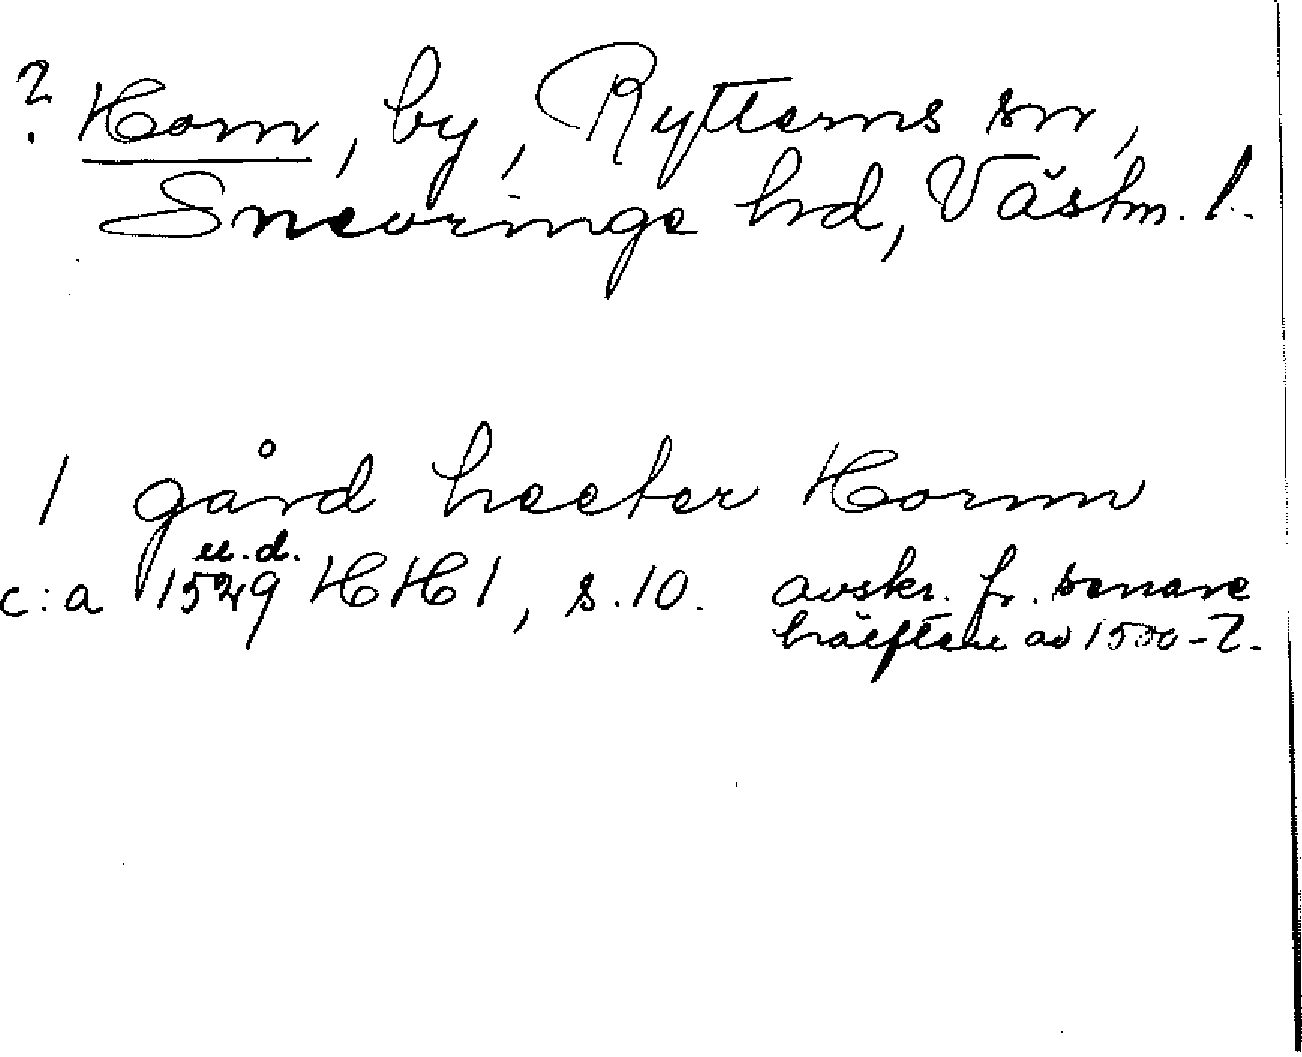 ? Horn, by, Rytterns sn,
Snevringe hd, Västm. l.
1 gård heeter Hornn
u.d.
c:a 1529 HH 1, s. 10. avskr. fr. senare
hälften av 1500-t.